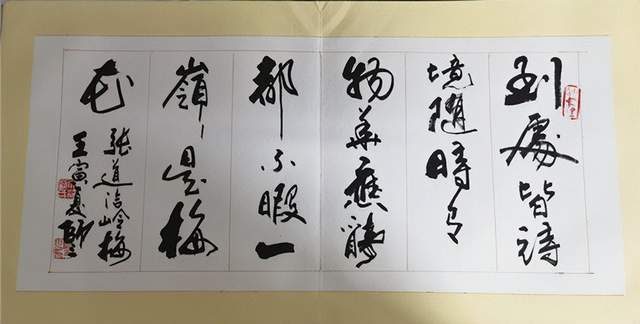 到處皆詩
境隨時有
物華應酬
都不暇一
嶺是梅
花
張道洽岭梅
壬寅夏